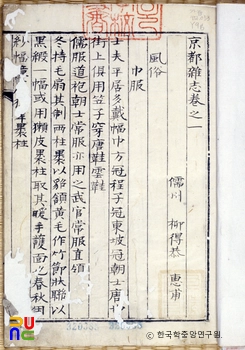 京都雜志卷之一
儒川 柳得恭 惠甫
風俗
巾服
士夫平居多戴幅巾方冠程子冠東坡冠朝士唐
街上俱用笠子穿唐鞋雲鞋
儒服道袍朝士常服亦用之武官常服直領
冬持毛扇其制兩柱裹以貂領黃毛作竹節狀聯以
黑緞一幅或用獺皮裹柱取其暖手護面也春秋用
紗幅
裹柱
© 한국학중앙연구원